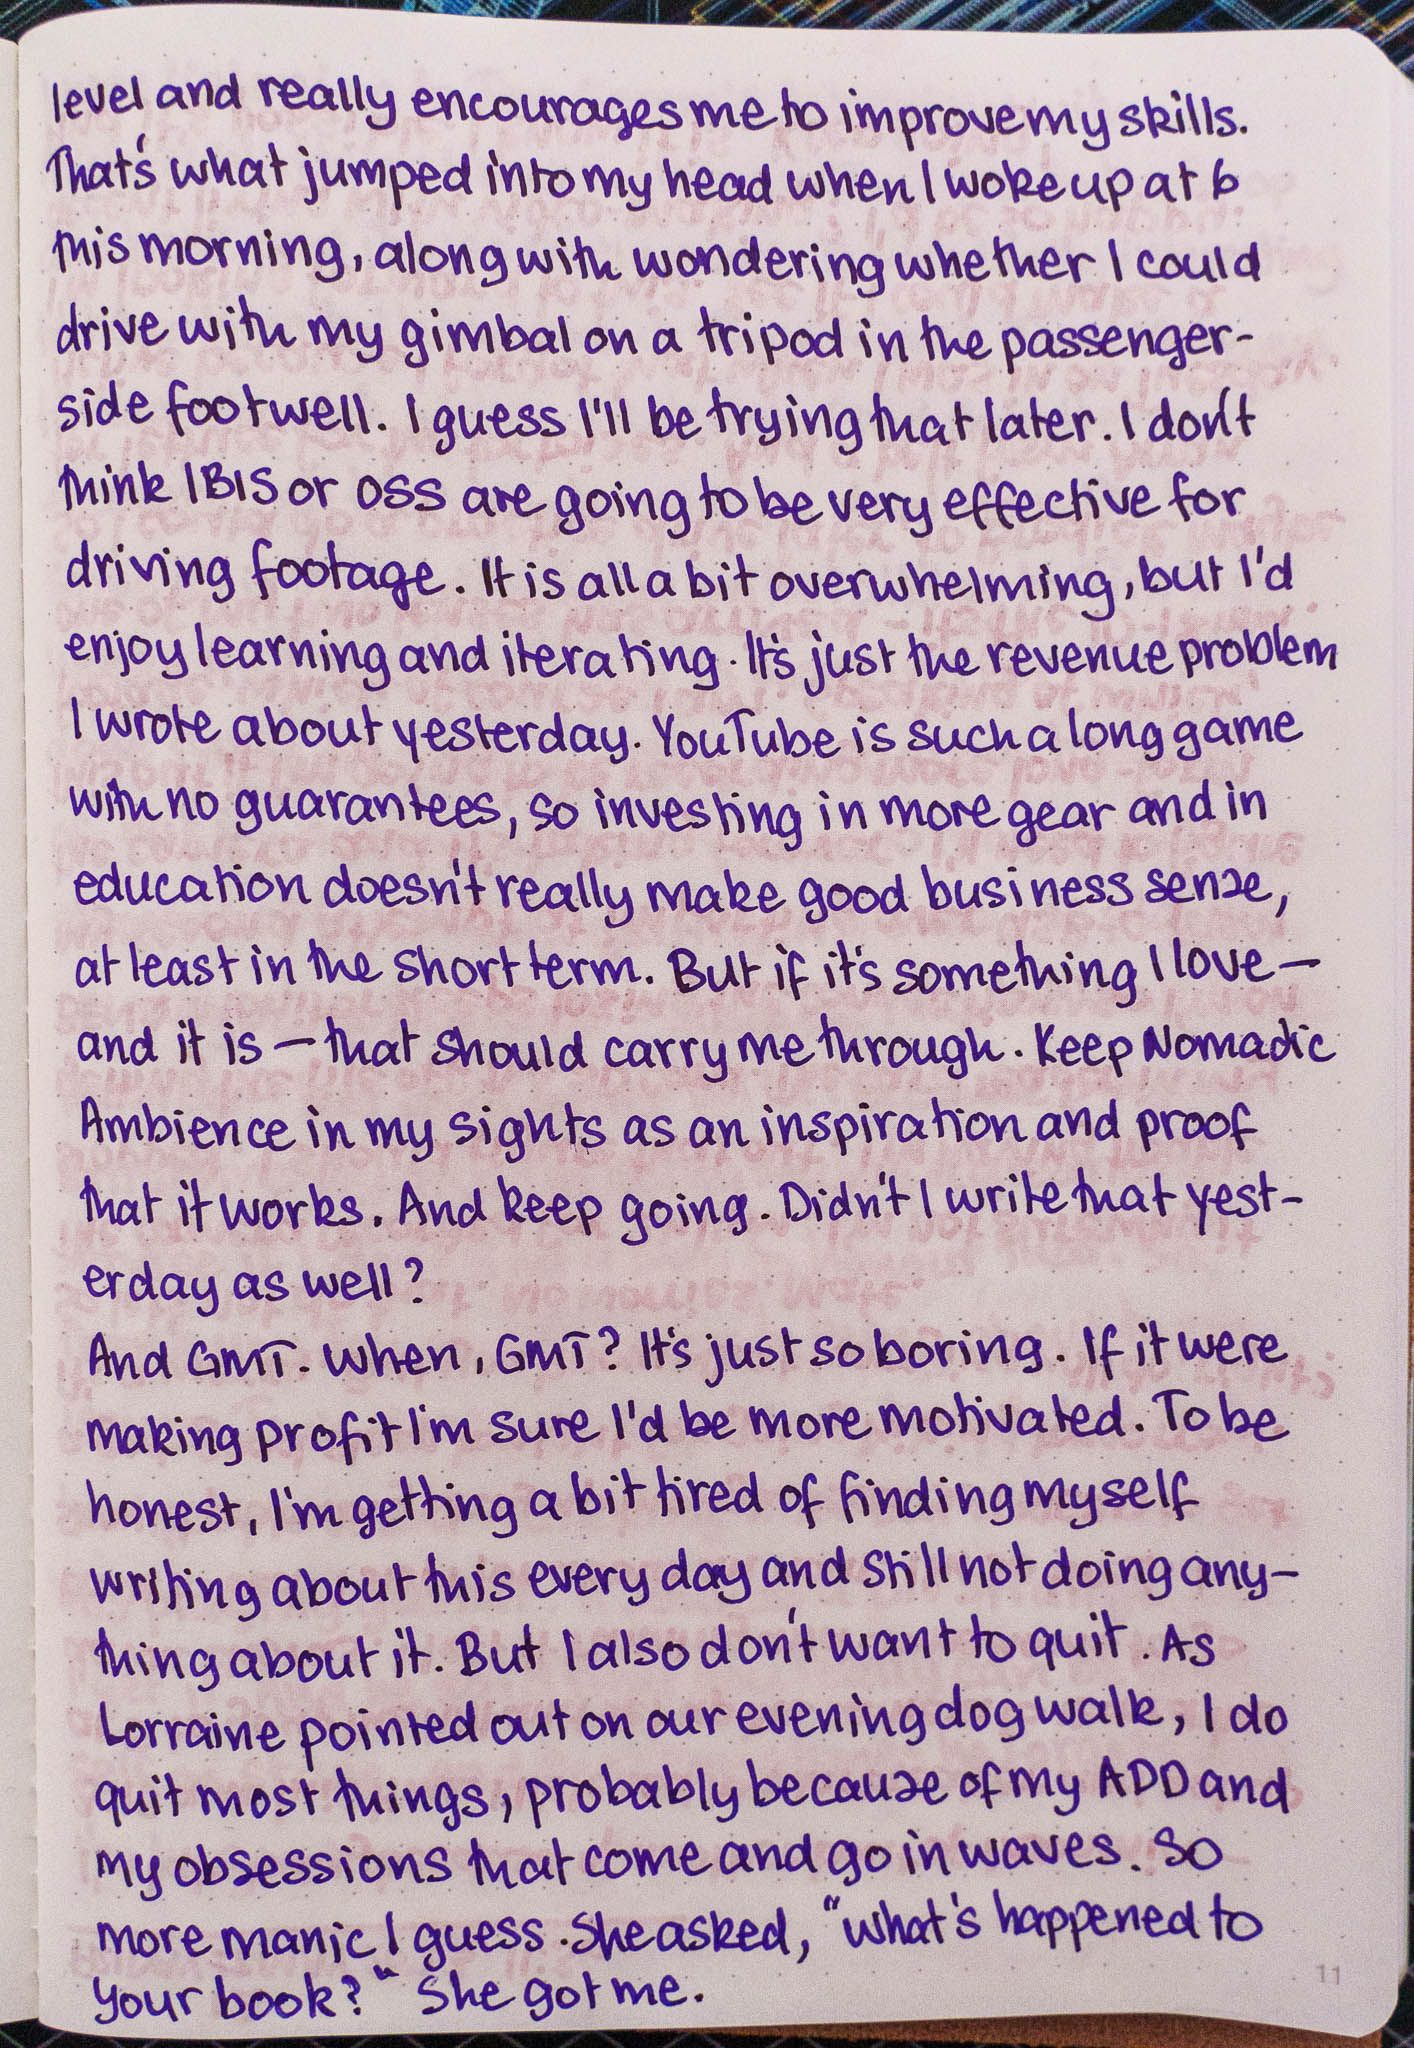 level and really encourages me to improve my skills.
That's what jumped into my head when I woke up at 6
this morning, along with wondering whether I could
drive with my gimbal on a tripod in the passenger-
side footwell. I guess I'll be trying that later. I don't
think IBIS or OSS are going to be very effective for
driving footage. It is all a bit overwhelming, but I'd
enjoy learning and iterating. It's just the revenue problem
I wrote about yesterday. YouTube is such a long game
with no guarantees, so investing in more gear and in
education doesn't really make good business sense,
at least in the short term. But if it's something I love—
and it is — that should carry me through. Keep Nomadic
Ambience in my sights as an inspiration and proof
that it works. And keep going. Didn't I write that yest-
erday as well?
And GMT. When, GMT? It's just so boring. If it were
making profit I'm sure I'd be more motivated. To be
honest, I'm getting a bit tired of finding myself
writing about this every day and still not doing any-
thing about it. But I also don't want to quit. As
Lorraine pointed out on our evening dog walk, I do
quit most things, probably because of my ADD and
my obsessions that come and go in waves. So
more manic I guess. She asked, "What's happened to
your book?" She got me.
11